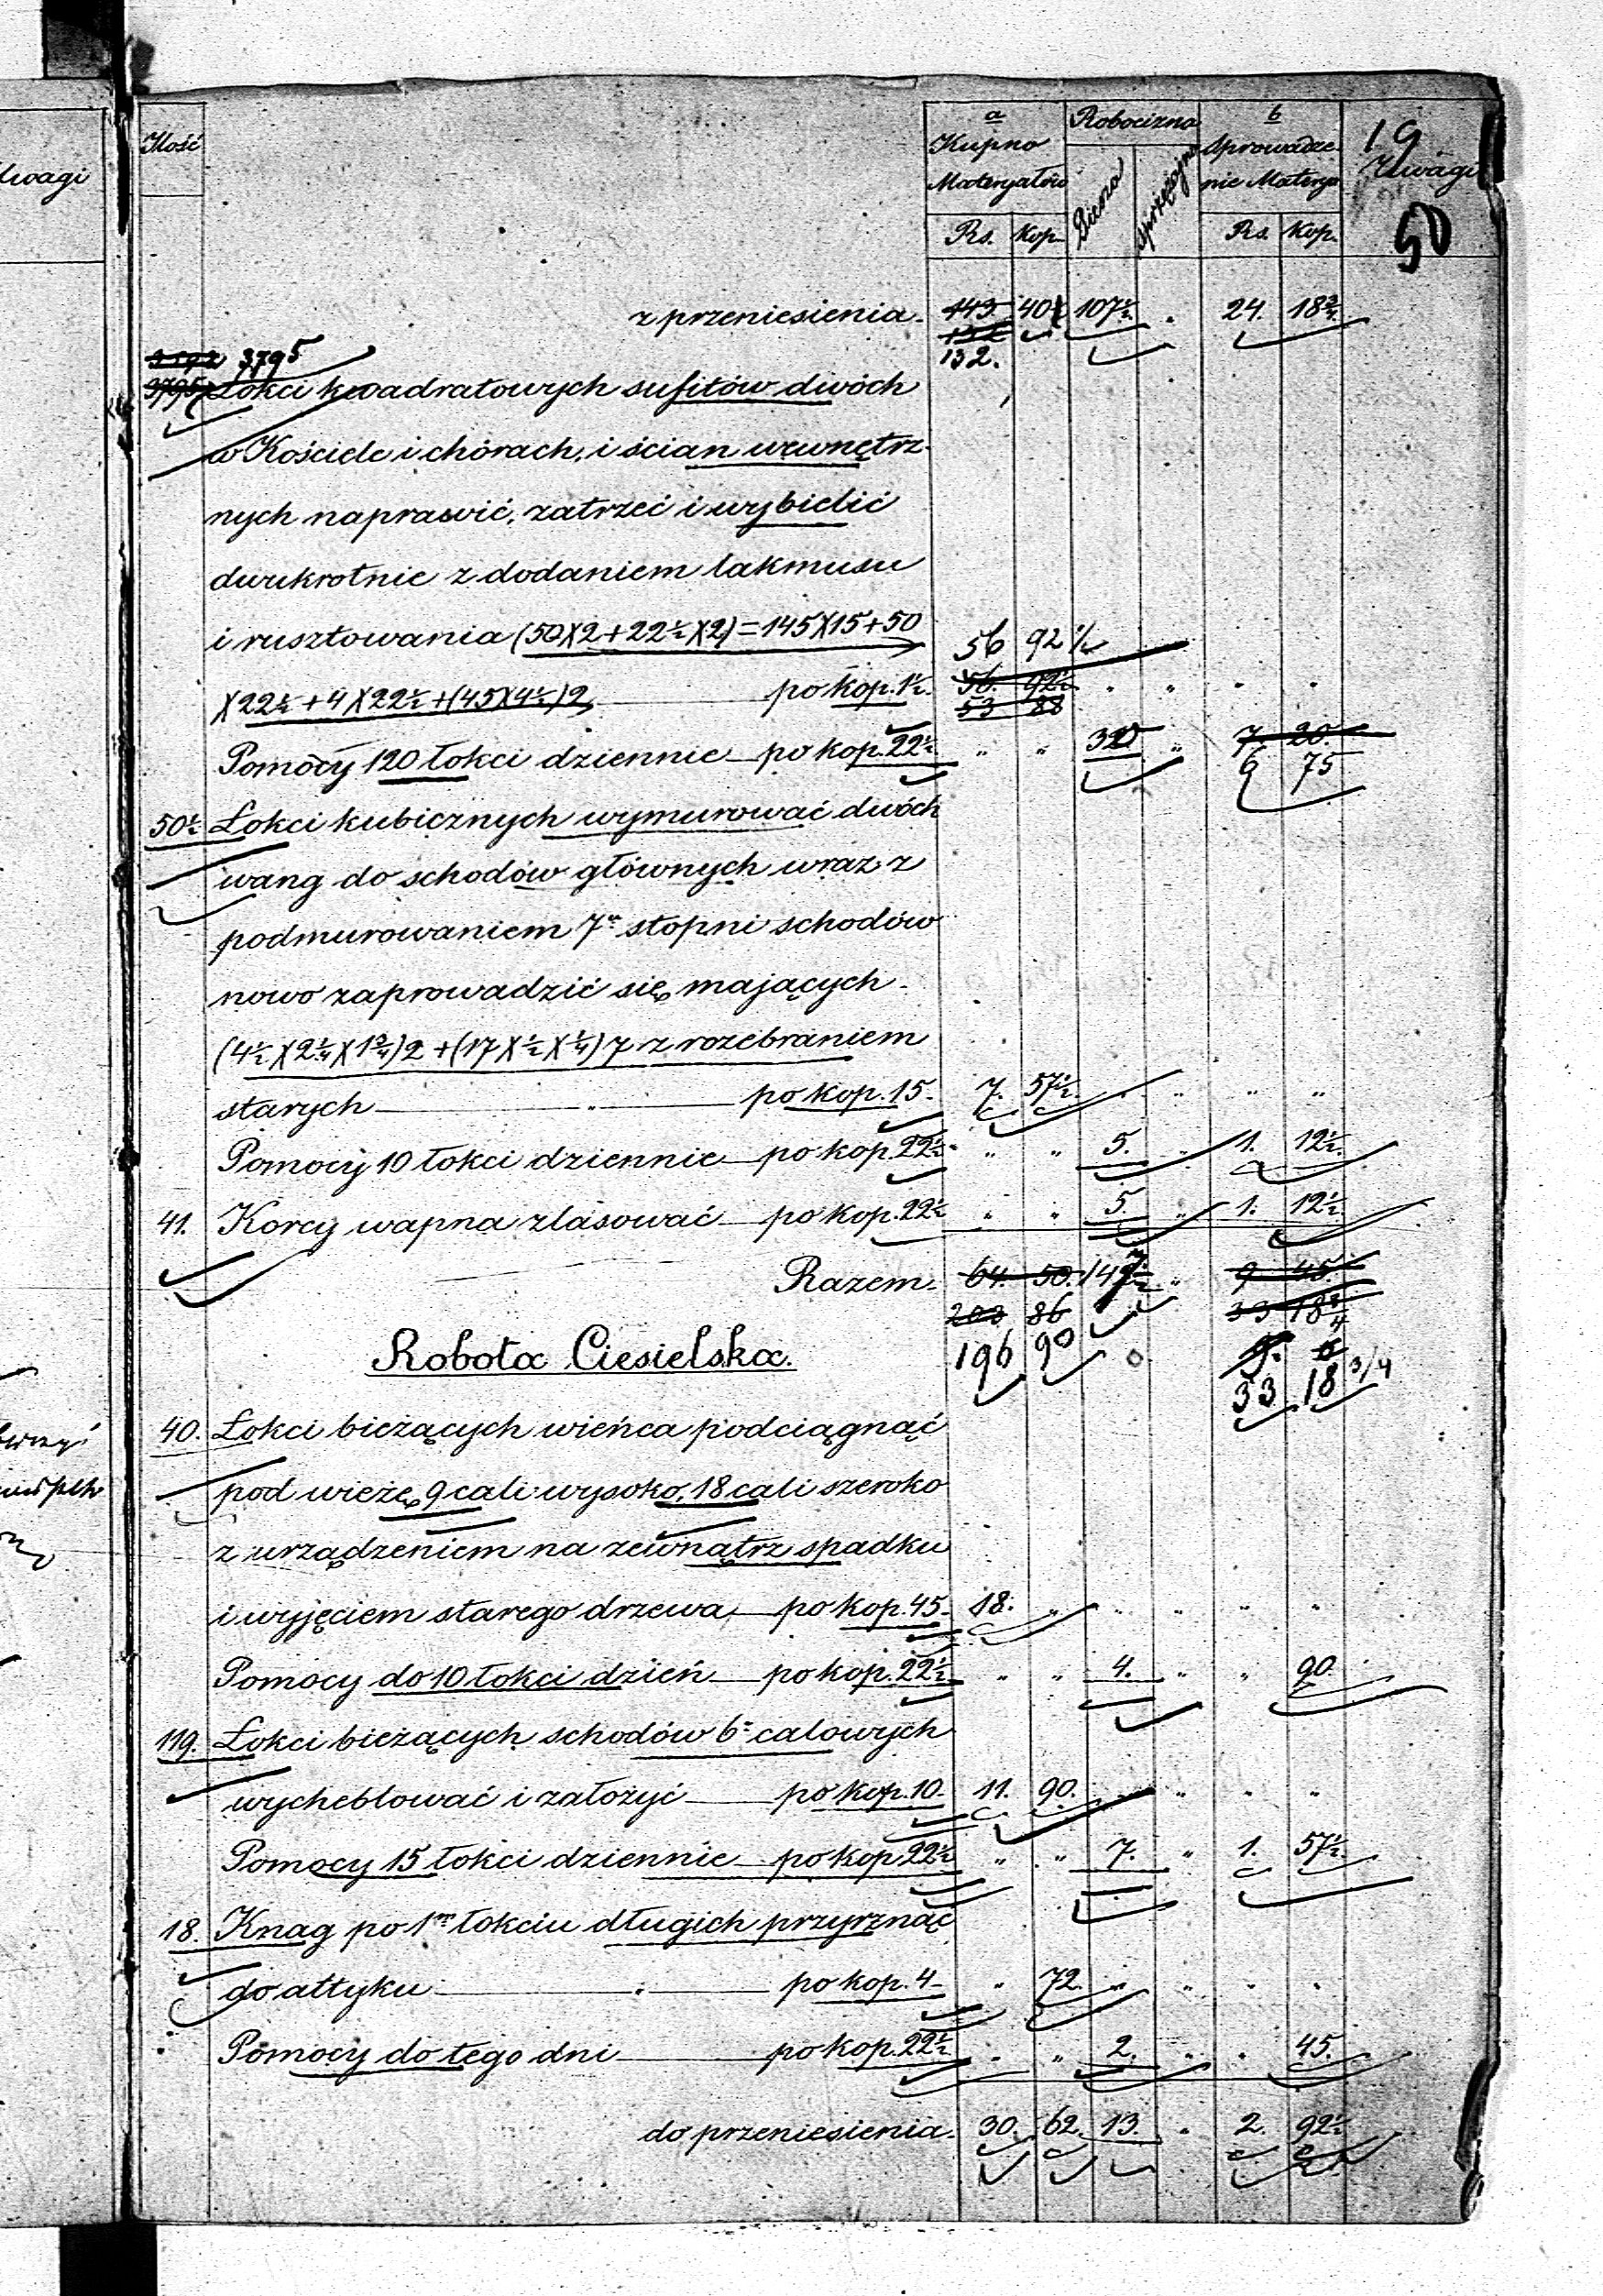 Uwagi
Ilość
a
Kupno
Materyałów
Rs. Kop.
Robocizna
Piesza
sprzężajna
b
Sprowadze-
nie Materya
Rs. Kop.
19
Uwagi
50
z przeniesienia. 143. 40 107½ " 24. 18¾
132
132.
3592 3795
3795 Łokci kwadratowych sufitów dwóch
w Kościele i chórach, i ścian wewnętrz-
nych naprawić, zatrzeć i wybielić
dwukrotnie z dodaniem lakmusu
i rusztowania (50X2+22½X2)=145X15+50 56 92½
X22½+4X22½+(45X4½)2 po kop. 1½. 56. 92½ " " " "
53 88
Pomocy 120 łokci dziennie po kop. 22½ " " 32 " 7. 20.
6 75
50½ Łokci kubicznych wymurować dwóch
wang do schodów głównych wraz z
podmurowaniem 7u stopni schodów
nowo zaprowadzić się mających
(4½X2¼X1¾)2+(17X½X¼)7 z rozebraniem
starych " po kop. 15. 7. 57½ " " " "
Pomocy 10 łokci dziennie po kop. 22½ " " 5. " 1. 12½
41. Korcy wapna zlasować po kop. 22½ " " 5. " 1. 12½
Razem. 64. 50. 149½ " 9 45.
203 86 33 18¾
196 90 33 18 3/4
Robota Ciesielska.
40. Łokci bieżących wieńca podciągnąć
pod wieżę 9 cali wysoko, 18 cali szeroko
z urządzeniem na zewnątrz spadku
i wyjęciem starego drzewa, po kop. 45. 18. " " " " "
Pomocy do 10 łokci dzień po kop. 22½ " " 4. " " 90.
119. Łokci bieżących schodów 6o calowych
wycheblować i założyć po kop. 10. 11. 90. " " " "
Pomocy 15 łokci dziennie po kop 22½ " " 7. " 1. 57½
18. Knag po 1m łokciu długich przyrznąć
do attyku " po kop. 4 " 72. " " " "
Pomocy do tego dni po kop. 22½ " " 2. " " 45.
do przeniesienia. 30. 62. 13. " 2. 92½